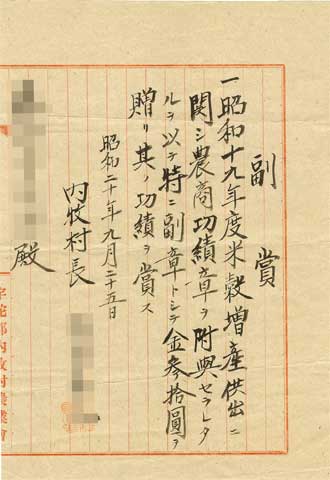 副賞
一昭和十九年度米穀増産供出ニ
関シ農商功績章ヲ附與セラレタ
ルヲ以テ特ニ副章トシテ金参拾圓ヲ
贈リ其ノ功績ヲ賞ス
昭和二十年九月二十五日
内牧村長
殿
宇陀郡内牧村農業會